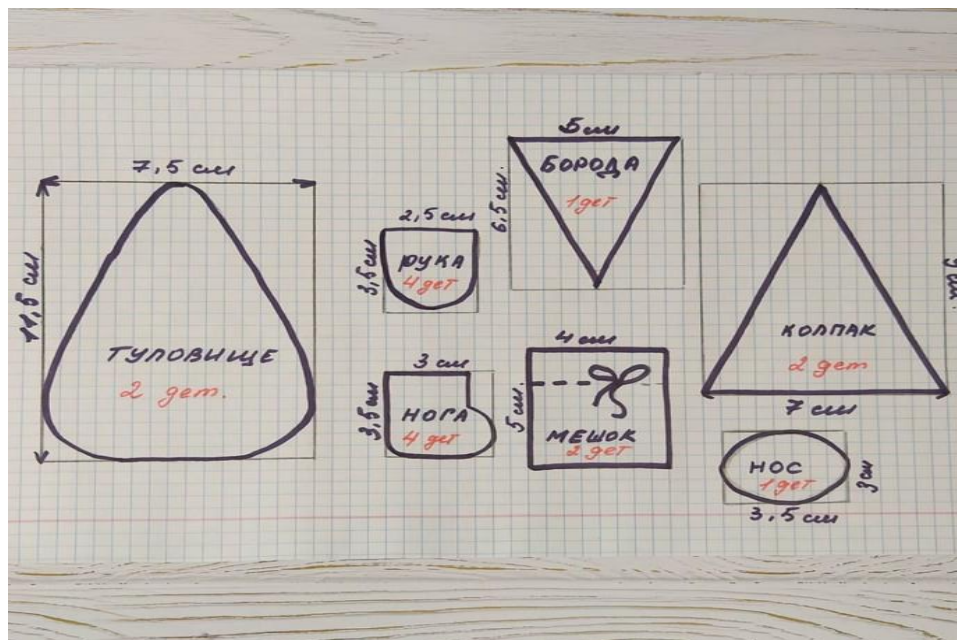 7,5 см
11,5 см
ТУЛОВИЩЕ
2 дет.
2,5 см
3,5 см
РУКА
4 дет
3 см
3,5 см
НОГА
4 дет
5 см
6,5 см.
БОРОДА
1 дет
4 см
5 см.
МЕШОК
2 дет
КОЛПАК
2 дет
7 см
НОС
1 дет
3 см
3,5 см